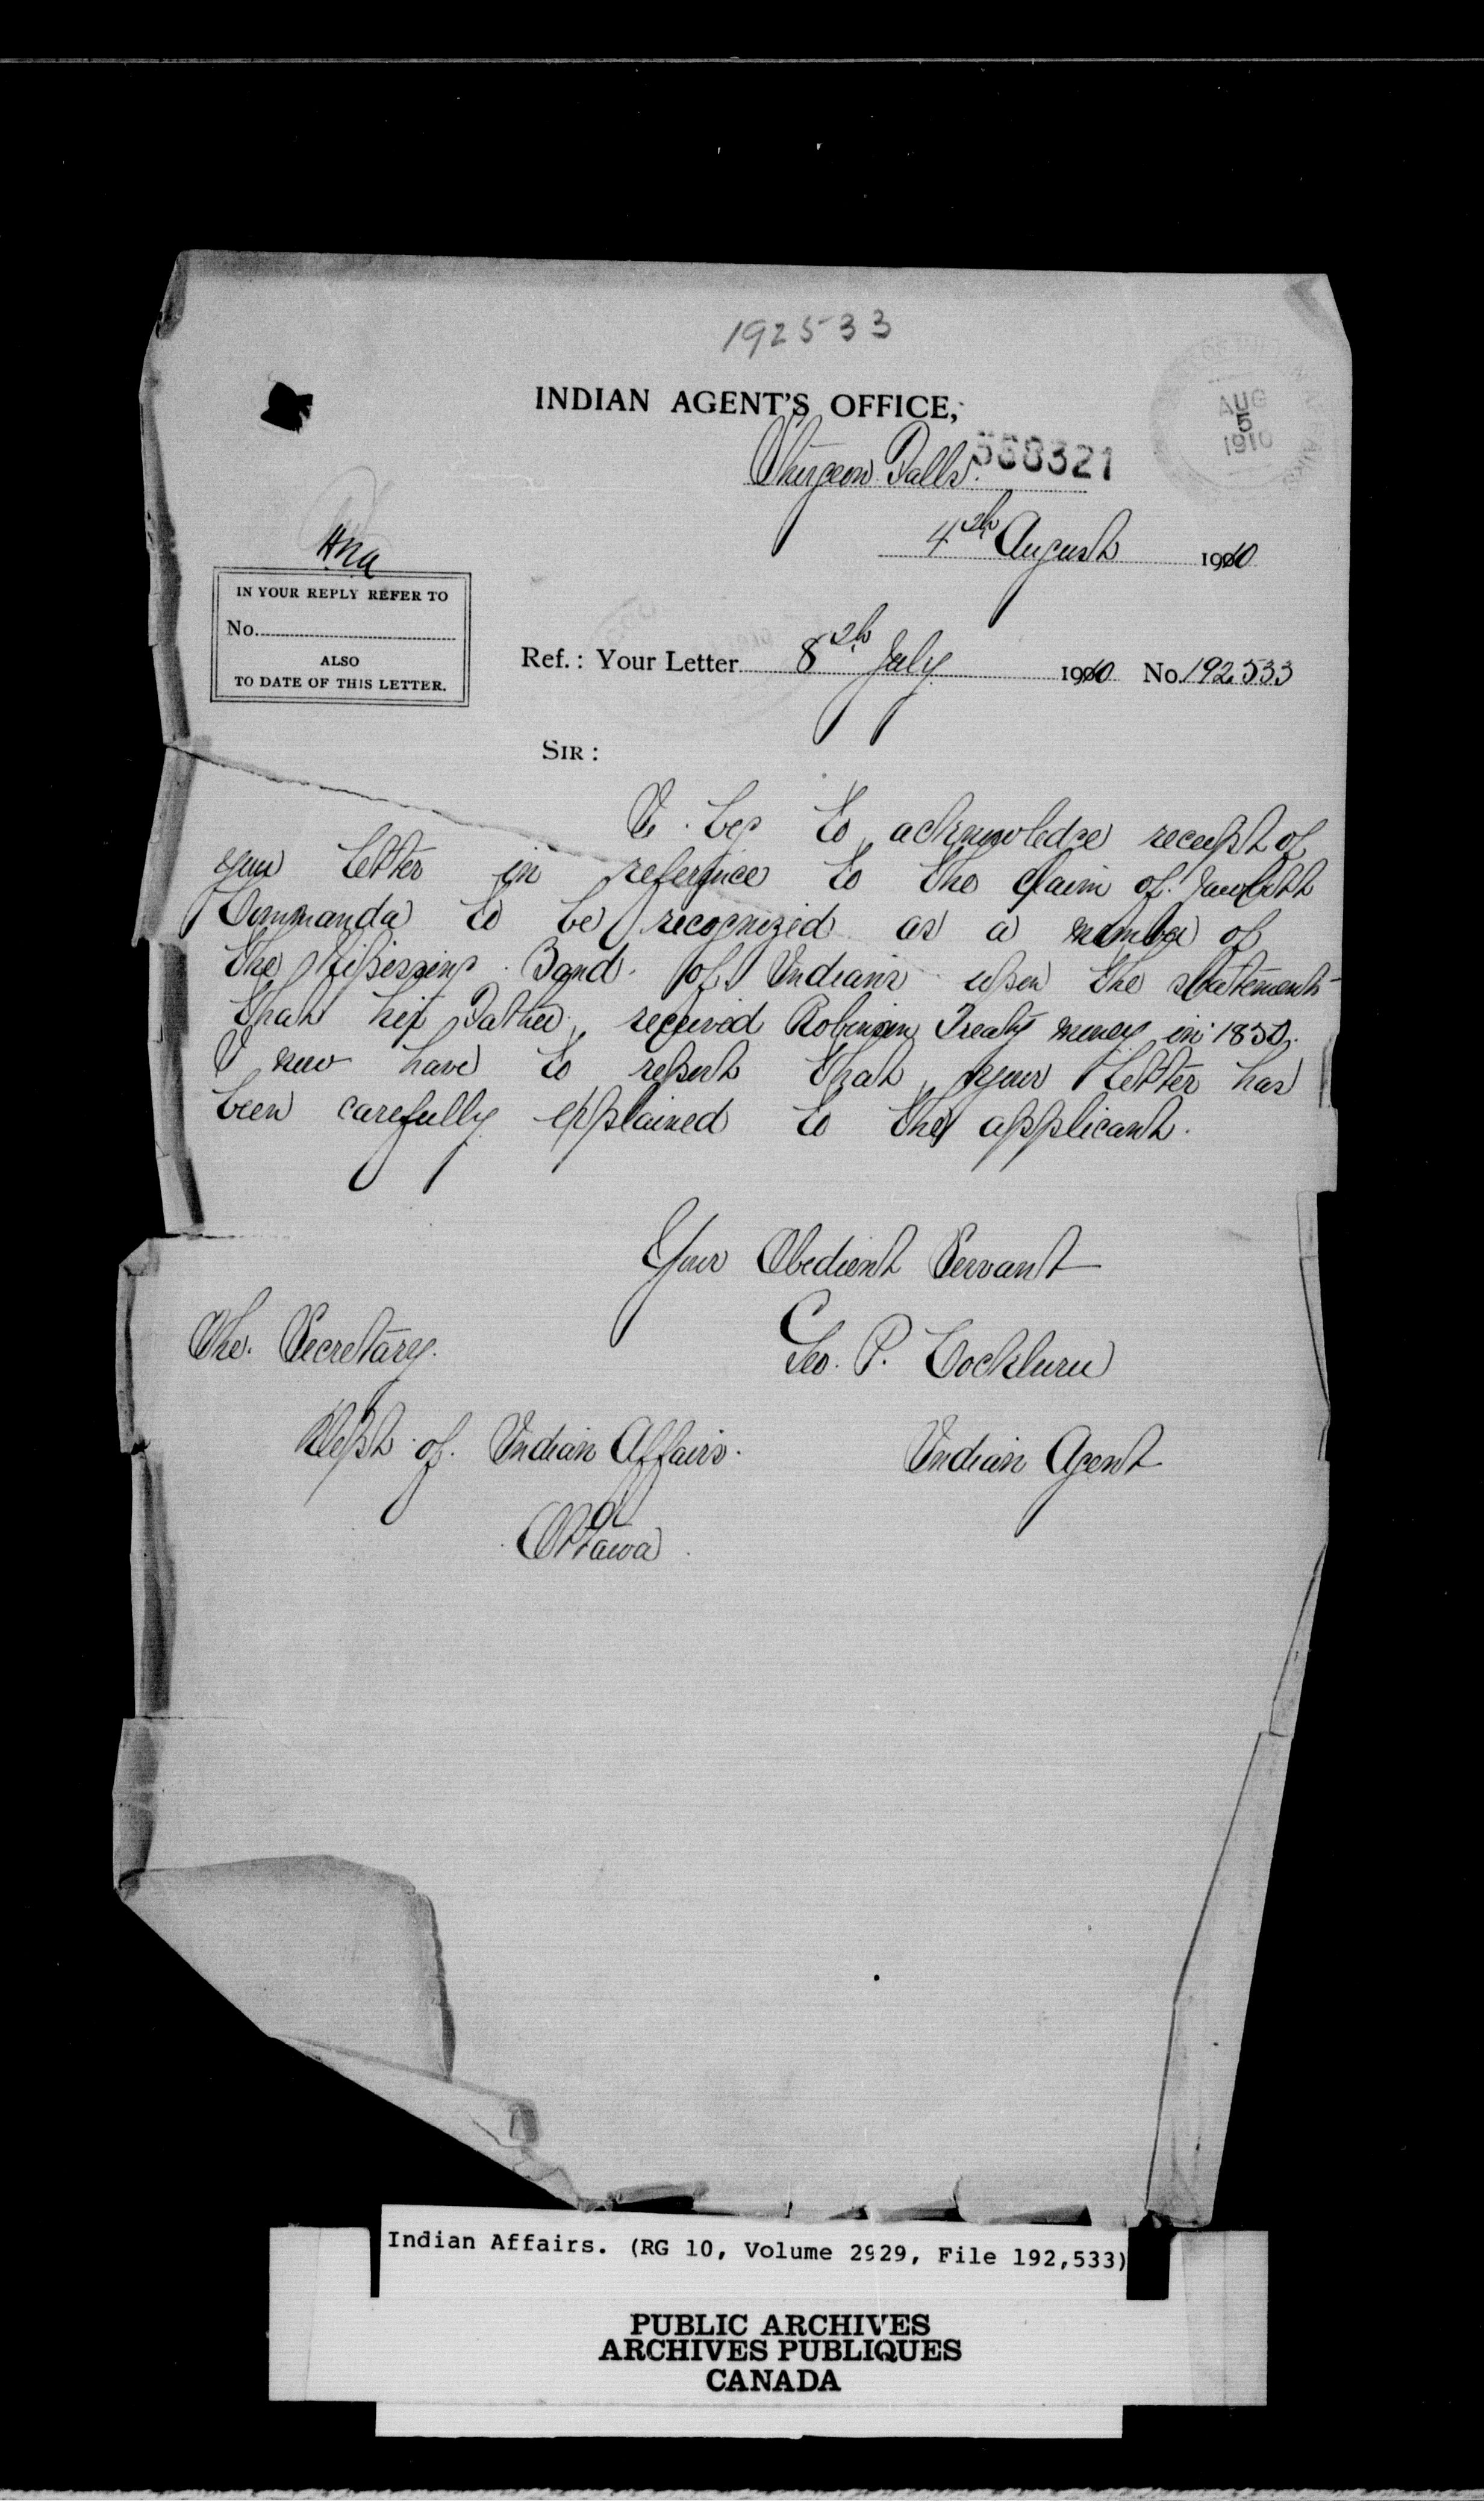 192533
INDIAN AGENT'S OFFICE,
Sturgeon Falls. 368321
AUG
5
1910
4th August 1910
IN YOUR REPLY REFER TO
No.
ALSO
TO DATE OF THIS LETTER.
Ref.: Your Letter 8th July 1910 No 192.533
SIR:
I beg to acknowledge receipt of
your letter in reference to the claim of
Commanda to be recognized as a member of
the Nipissing Band of Indians upon the statement
that his Father received Robinson Treaty money in 1850.
I now have to report that your letter has
been carefully explained to the applicant.
Your Obedient Servant
Geo. P. Cockburn
Indian Agent
The Secretary.
Dept of Indian Affairs.
Ottawa
Indian Affairs. (RG 10, Volume 2929, File 192,533)
PUBLIC ARCHIVES
ARCHIVES PUBLIQUES
CANADA